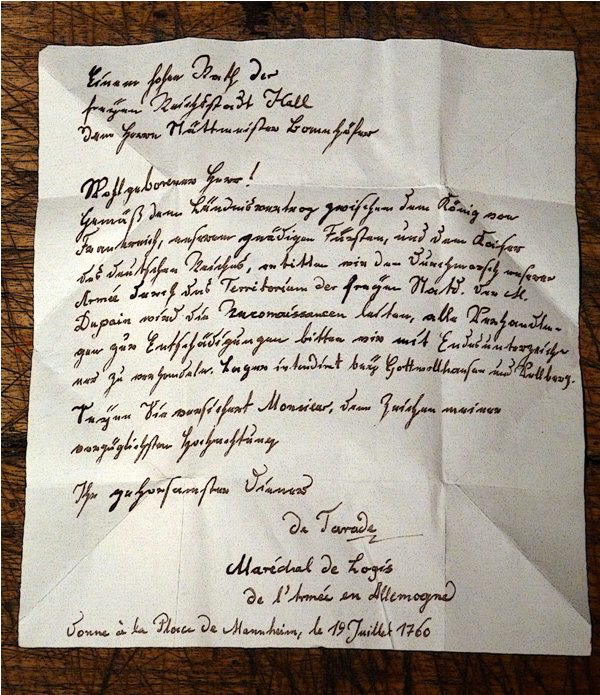 Einem hohen Rath der
freyen Reichsstadt Hall
dem Herrn Stättmeister Bonnhöfer
Wohlgeborener Herr!
Gemäß dem Bündnisvertrag zwischen dem König von
Frankreich, unserem gnädigen Fürsten, und dem Kaiser
des deutschen Reiches, erbitten wir den Durchmarsch unserer
Armée durch das Territorium der freyen Stadt. Der M.
Dupain wird die Reconaissancen leiten, alle Verhandlun-
gen zur Entschädigungen bitten wir mit Endesunterzeich-
ner zu verhandeln. Lager intendirt bey Gottwollshausen und Rollberg.
Seyen Sie versichert Monsieur, dem Zeichen meiner
vorzüglichsten Hochachtung
Ihr gehorsamster Diener
de Tarade
Maréchal de Logis
de l'Armée en Allemogne
Donné à la Place de Mannheim, le 19 Juillet 1760